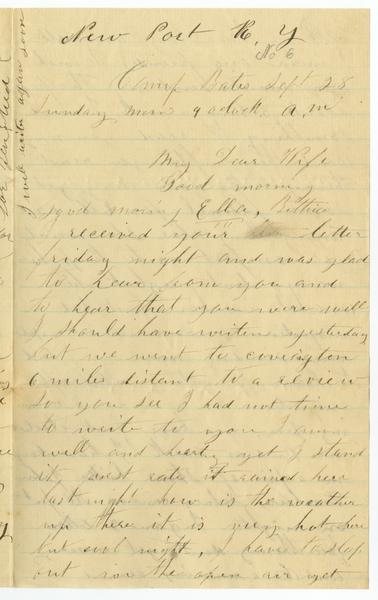 New Port K, Y
No 6
Camp Bates Sept 28
Sunday morn 9 oclock, a, m
My Dear Wife
Good morning
good morning Ella,
received your letter
friday night and was glad
to hear from you and
to hear that you were well
I should have writen yesterday
but we went to covengton
6 miles distant to a review
so you see I had not time
to write to you I am
well and yet I stand
it, rate it rained here
last night how is the weather
up there it is very hot here
but cool night, I have to sleep
out in the open air yet
I will write again soon